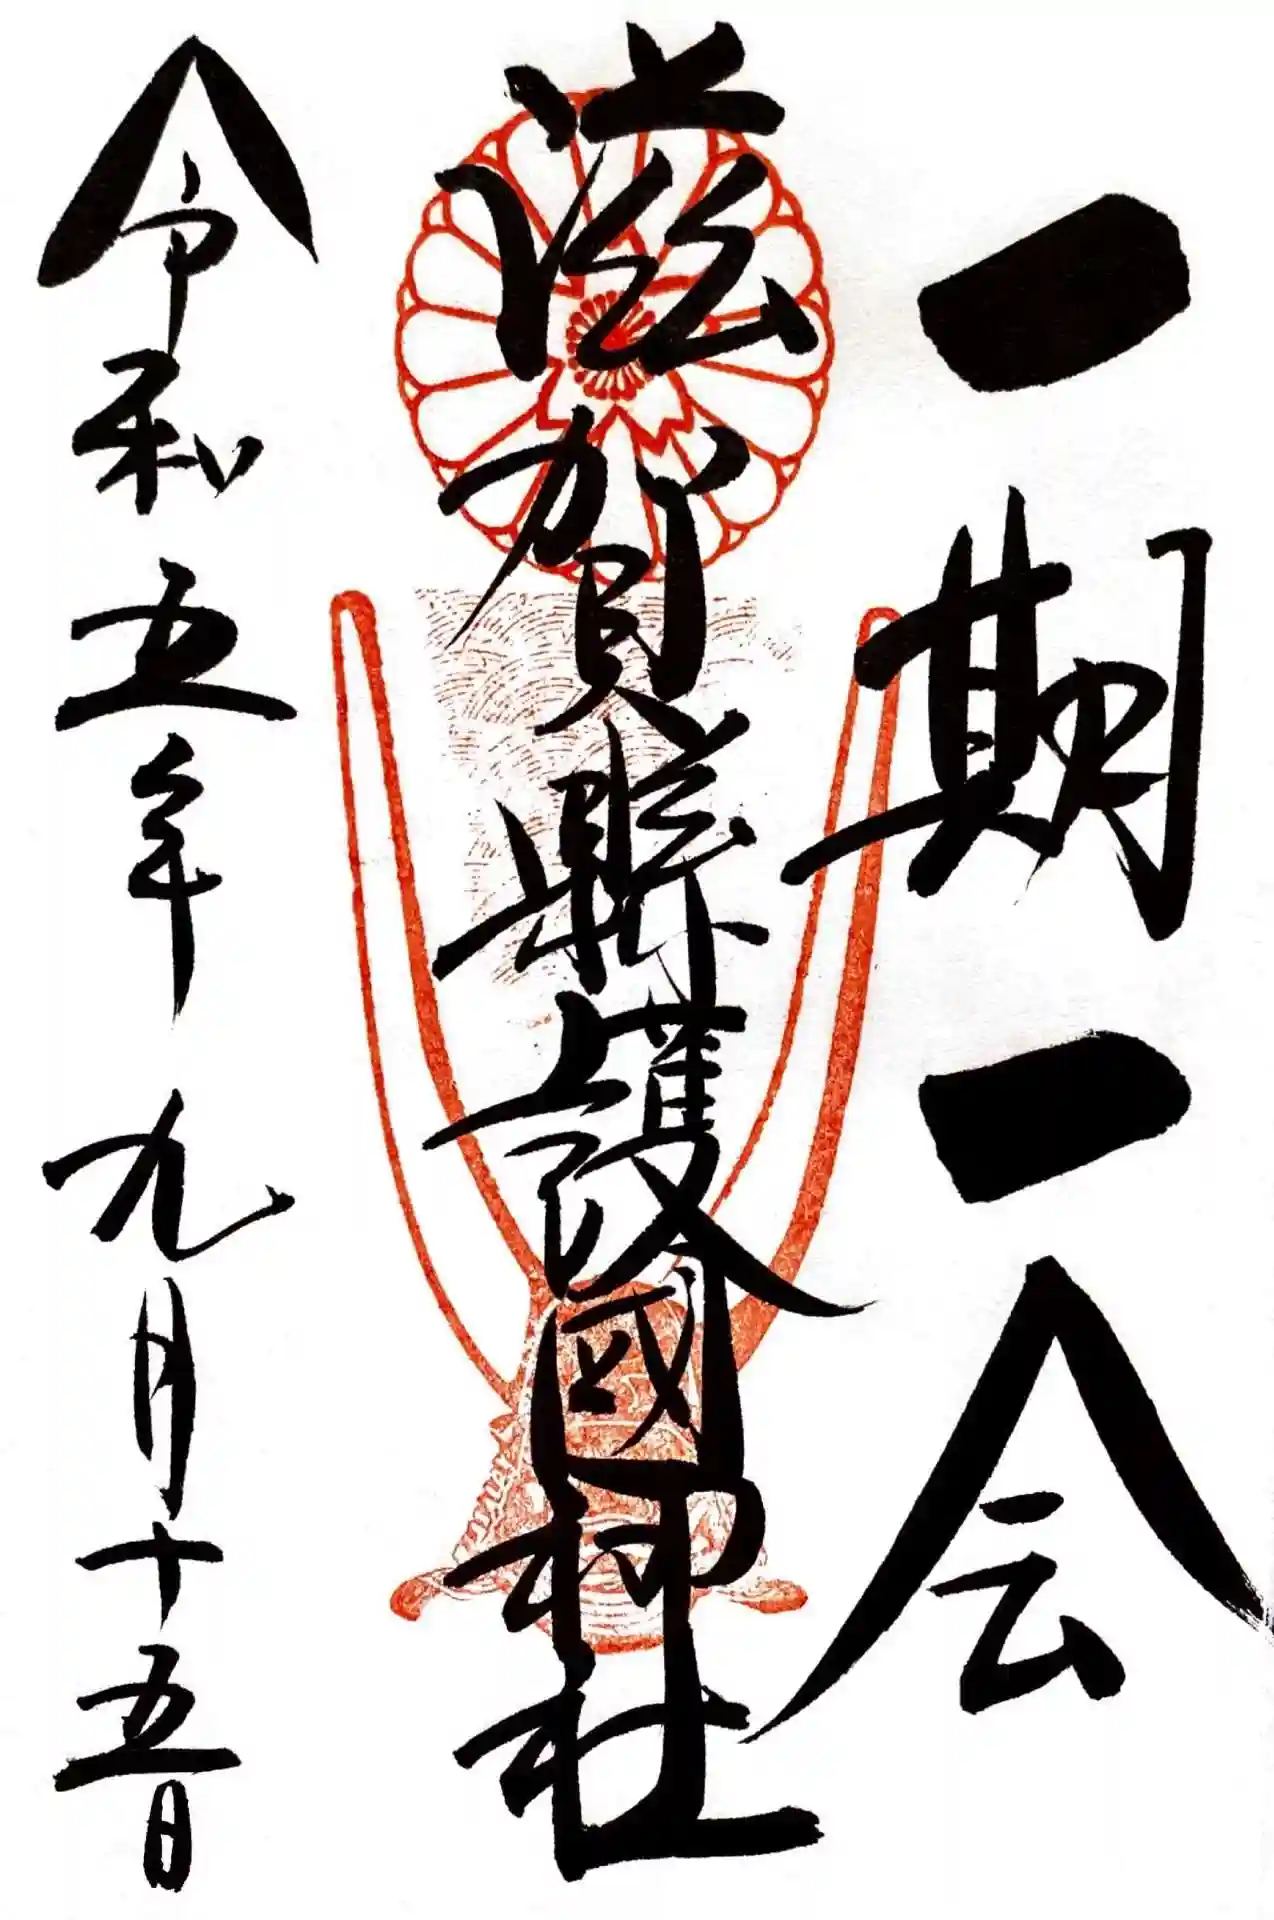 一期一会
滋賀縣護國神社
令和五年九月十五日